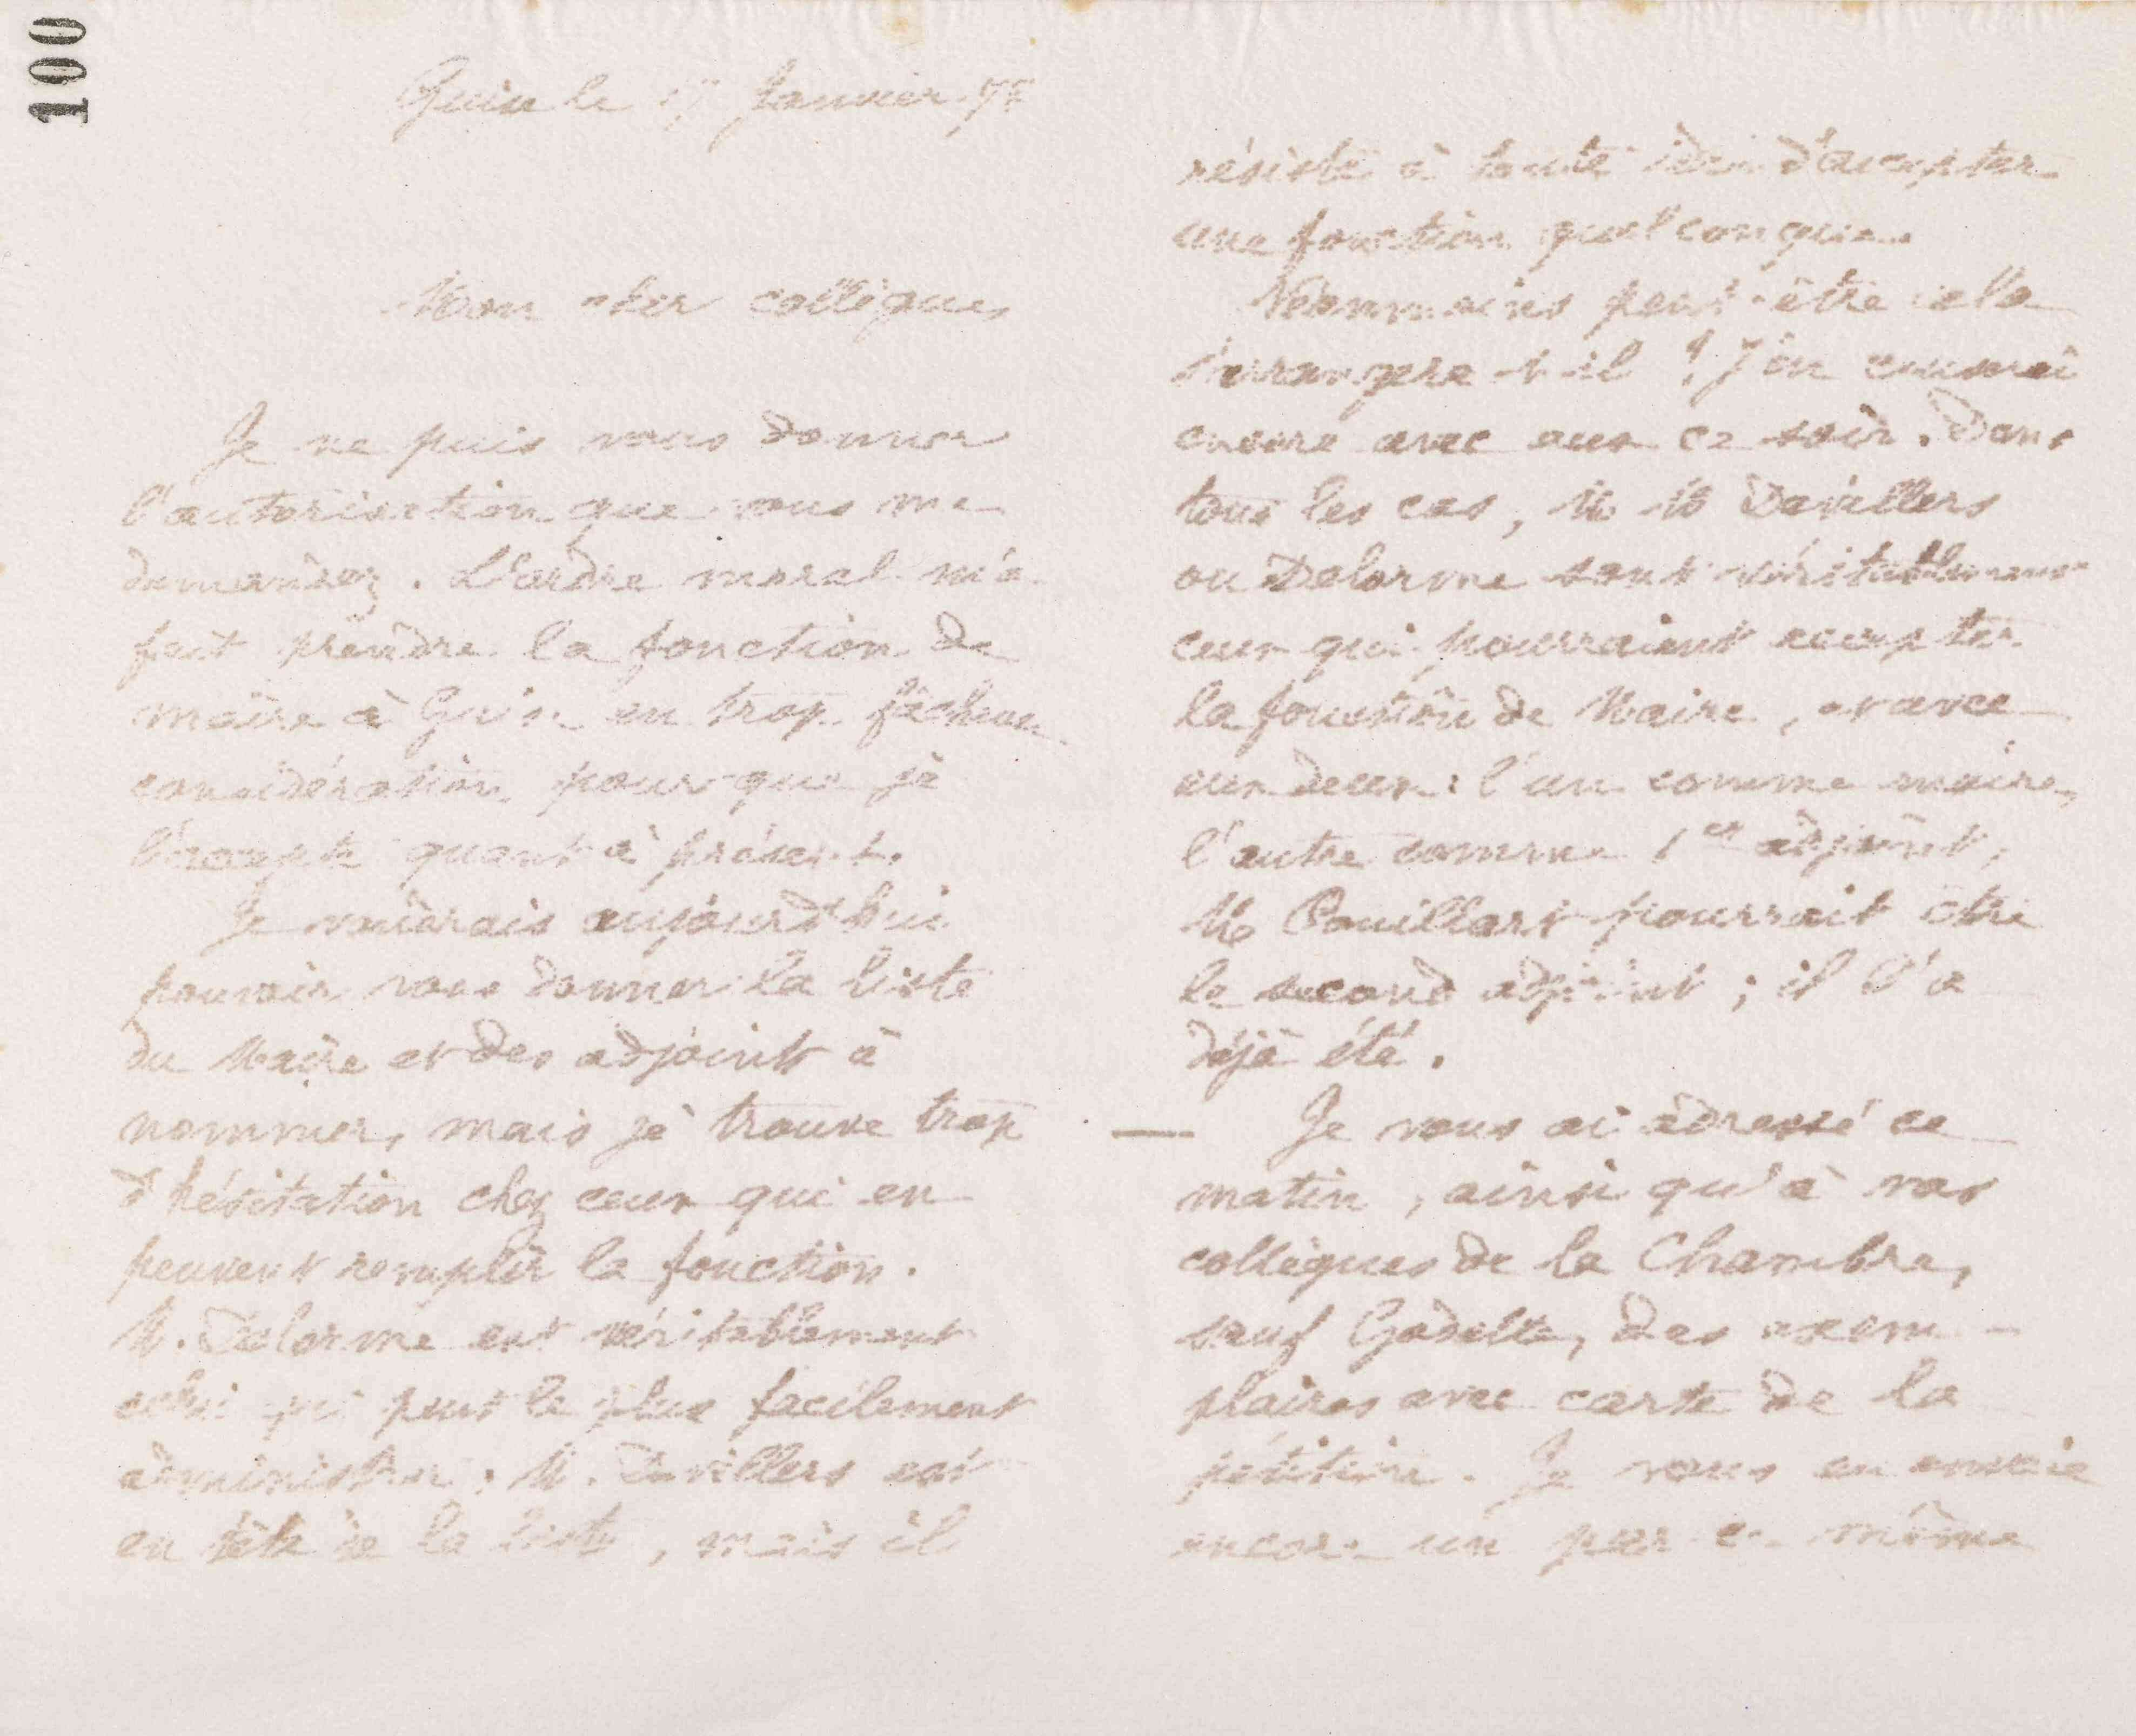 100
Guise le 17 Janvier 78
Mon cher collègue,
Je ne puis vous donner
l'autorisation que vous me
demandez. L'ordre moral m'a
fait prendre la fonction de
maire à Guise en trop fâcheuse
considération pour que je
l'accepte quant à présent.
Je voudrais aujourd'hui
pouvoir vous donner la liste
du Maire et des adjoints à
nommer, mais je trouve trop
d'hésitation chez ceux qui en
peuvent remplir la fonction.
M. Delorme est véritablement
celui qui peut le plus facilement
administrer; M. Devillers est
en tête de la liste, mais il
résiste à toute idée d'accepter
une fonction quelconque.
Néanmoins peut-être cela
s'arrangera-t-il ! J'en causerai
encore avec eux ce soir. Dans
tous les cas, M M Devillers
ou Delorme sont véritablement
ceux qui pourraient accepter
la fonction de Maire, avec
eux deux : l'un comme maire,
l'autre comme 1er adjoint,
M. Pouillart pourrait être
le second adjoint ; il l'a
déjà été.
— Je vous ai adressé ce
matin, ainsi qu'à vos
collègues de la Chambre,
sauf Godelle, des exem-
plaires avec carte de la
pétition. Je vous en envoie
encore un par ce même